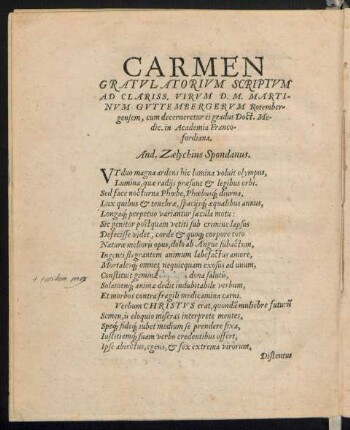 CARMEN
GRATVLATORIVM SCRIPTVM
AD CLARISS. VIRVM D. M. MARTI-
NVM GVTTEMBERGERVM Rotember-
gensem, cum decerneretur ei gradus Doct. Me-
dic. in Academia Franco-
fordiana.
And. Zælychius Spondanus.
VT duo magna ardens hic lumina voluit olympus,
Lumina, quæ radijs præsunt & legibus orbi.
Sed face nocturna Phœbe, Phœbusq́; diurna,
Lux quibus & tenebræ, spacijsq́; æqualibus annus,
Longaq́; perpetuo variantur sæcula motu:
Sic genitor postquam vetiti sub crimine lapsus
Defecisse videt, corde & quoq́; corpore toto
Naturæ melioris opus, dolo ab Angue subactum,
Ingenti stagrantem animum labefactus amore,
Mortaleis omnes nequicquam exosus ad unum,
Constituit gemina dona salutis,
Solatioq́; animæ dedit indubitabile verbum,
Et morbos contra fragili medicamina carni.
Verbum CHRISTVS erat, quondā muliebre futurū
Semen, is eloquio miseras interprete mentes,
Speq́; fideq́; iubet medium se prendere fixa,
Iustitiamq́; suam verbo credentibus offert,
Ipse abiectus, egens, & fex extrema virorum,
Distentus